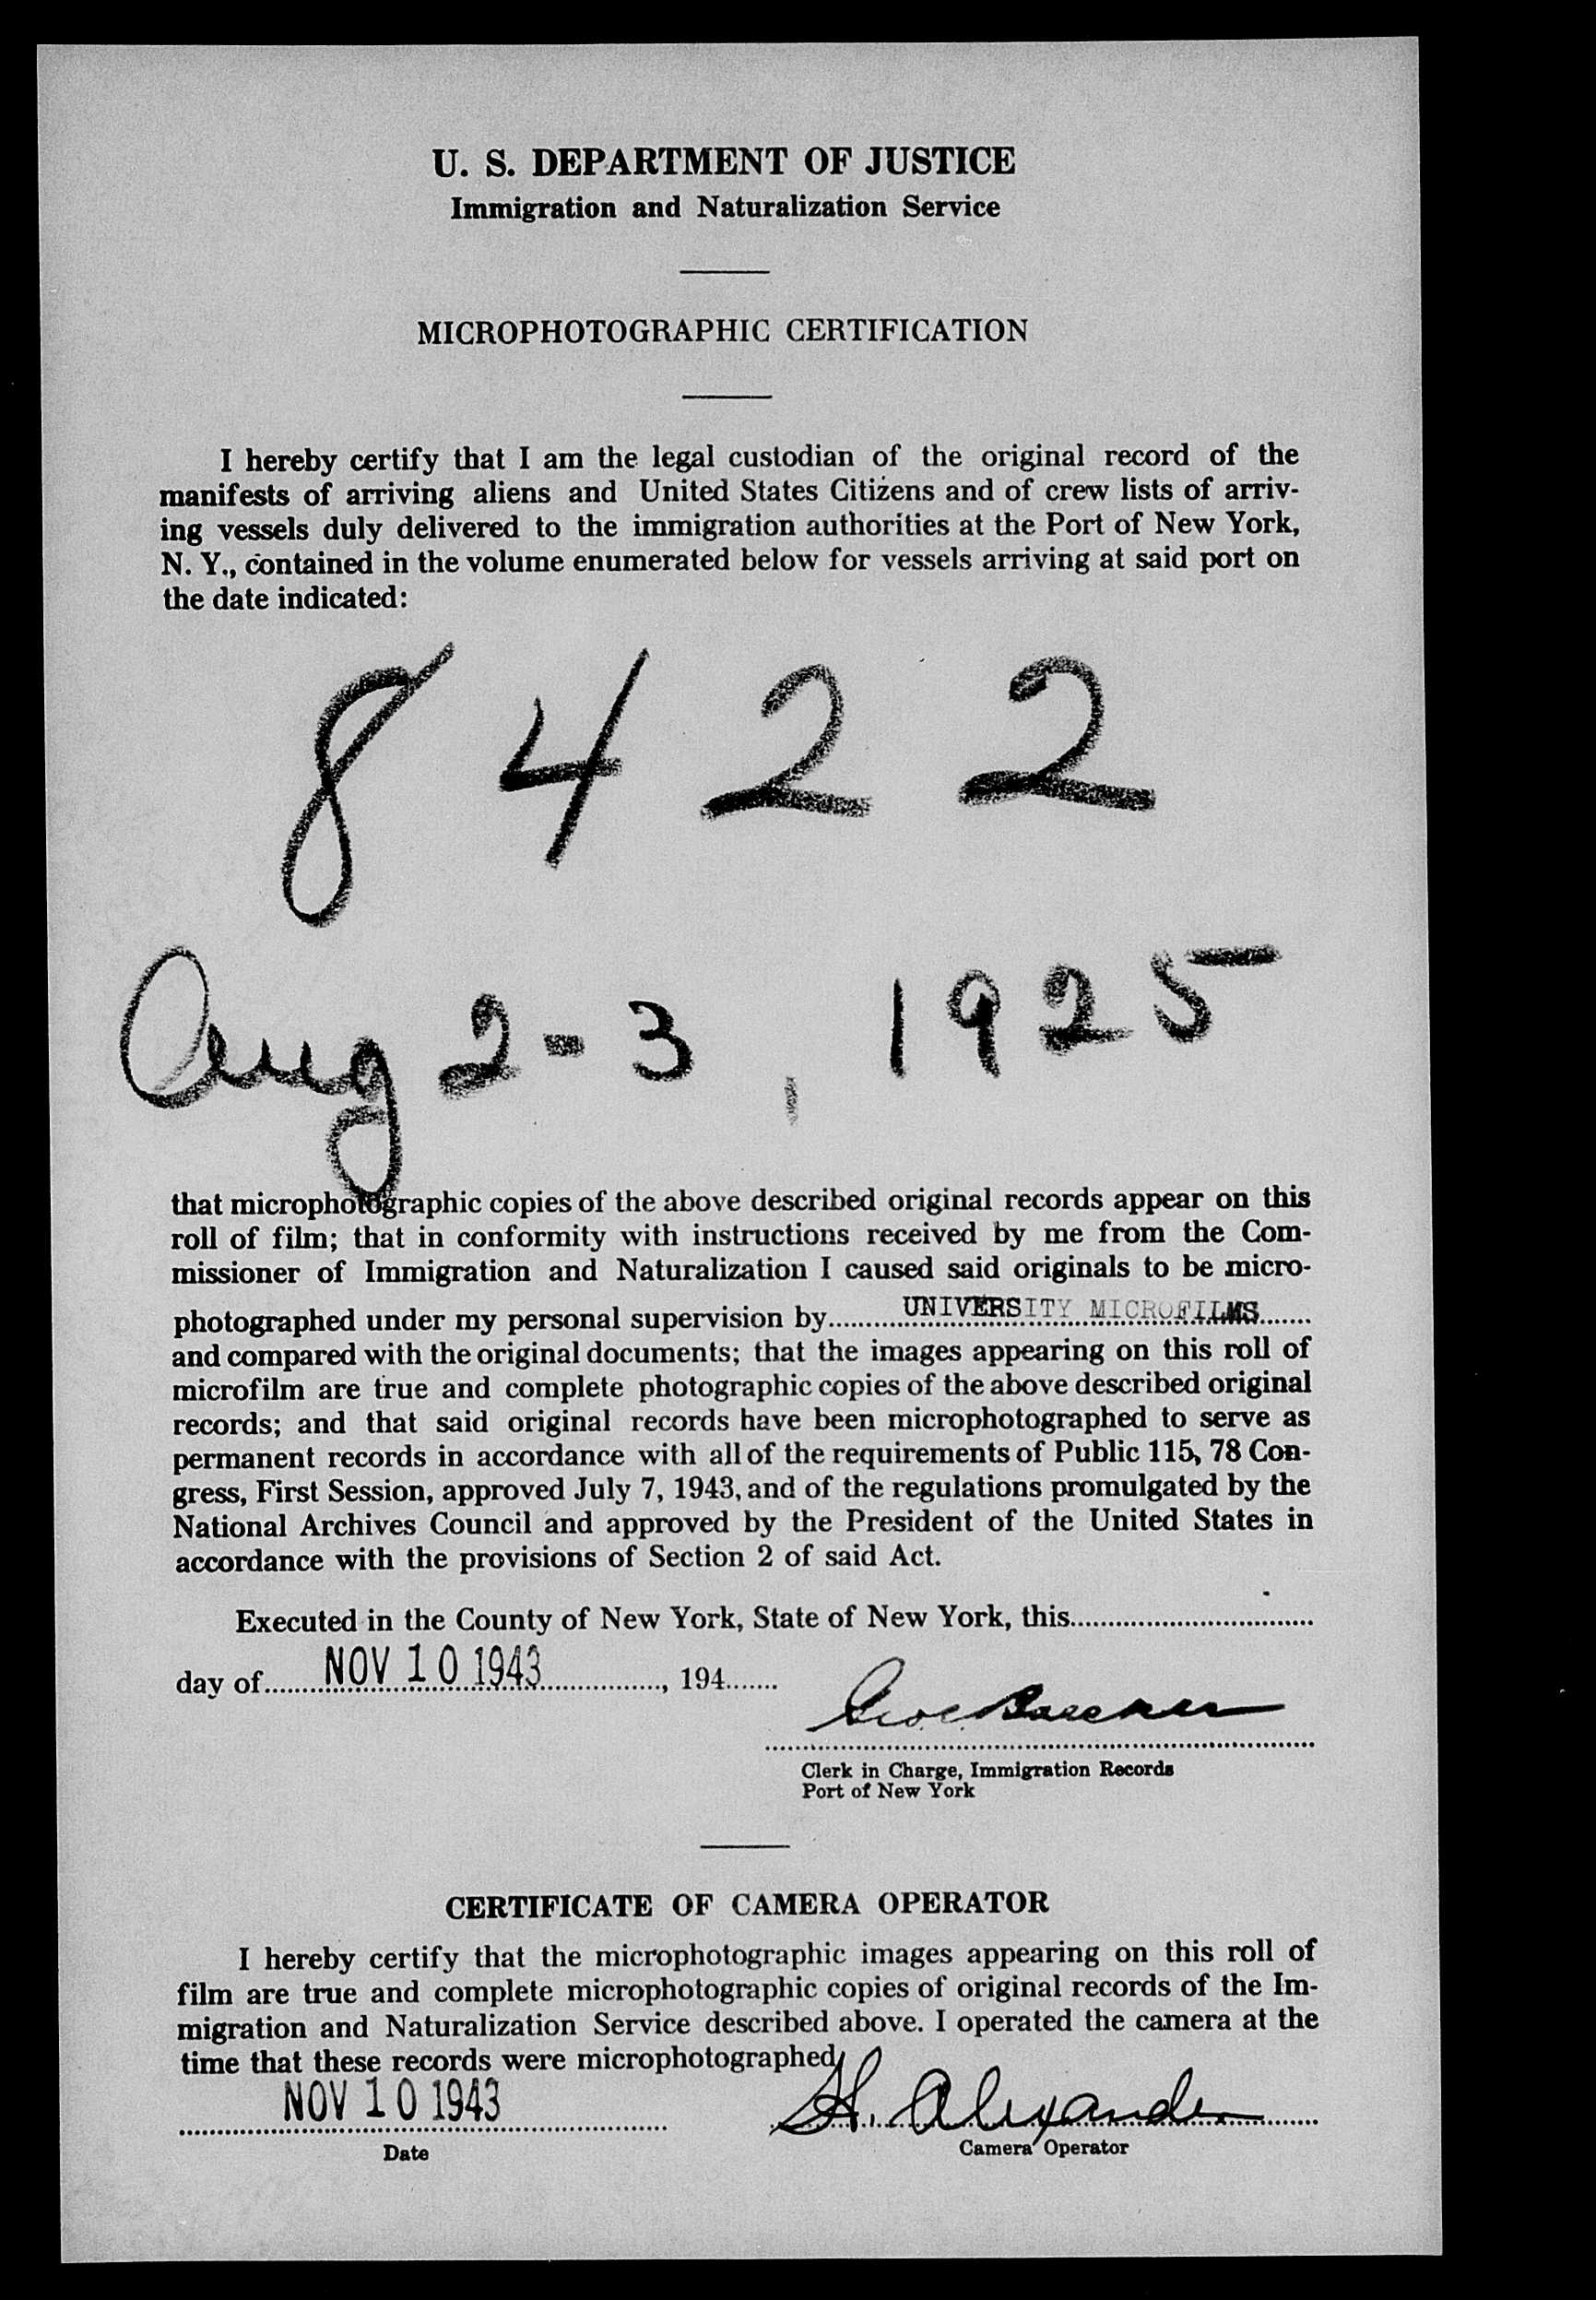 U. S. DEPARTMENT OF JUSTICE
Immigration and Naturalization Service
MICROPHOTOGRAPHIC CERTIFICATION
I hereby certify that I am the legal custodian of the original record of the
manifests of arriving aliens and United States Citizens and of crew lists of arriv-
ing vessels duly delivered to the immigration authorities at the Port of New York,
N. Y., contained in the volume enumerated below for vessels arriving at said port on
the date indicated:
8422
Aug 2-3, 1925
that microphotographic copies of the above described original records appear on this
roll of film; that in conformity with instructions received by me from the Com-
missioner of Immigration and Naturalization I caused said originals to be micro-
photographed under my personal supervision by UNIVERSITY MICROFILMS
and compared with the original documents; that the images appearing on this roll of
microfilm are true and complete photographic copies of the above described original
records; and that said original records have been microphotographed to serve as
permanent records in accordance with all of the requirements of Public 115, 78 Con-
gress, First Session, approved July 7, 1943, and of the regulations promulgated by the
National Archives Council and approved by the President of the United States in
accordance with the provisions of Section 2 of said Act.
Executed in the County of New York, State of New York, this
day of NOV 10 1943, 194
Clerk in Charge, Immigration Records
Port of New York
CERTIFICATE OF CAMERA OPERATOR
I hereby certify that the microphotographic images appearing on this roll of
film are true and complete microphotographic copies of original records of the Im-
migration and Naturalization Service described above. I operated the camera at the
time that these records were microphotographed.
NOV 10 1943 H. Alexander
Date Camera Operator